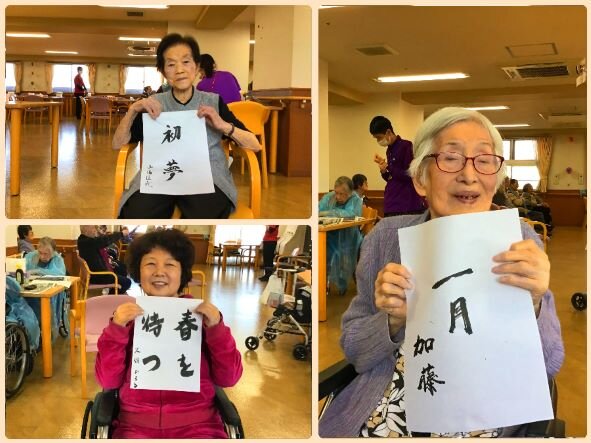 初夢
春を
待つ
一月
加藤